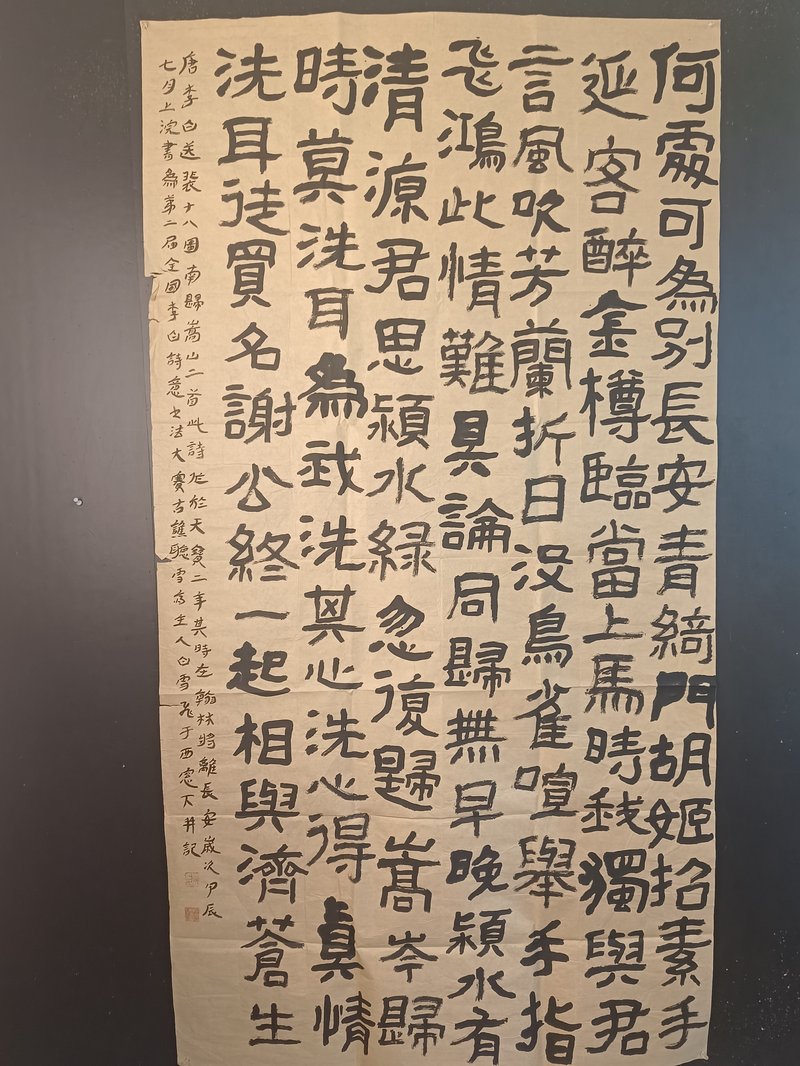 何處可為別長安青綺門胡姬招素手
延客醉金樽臨當上馬時我獨與君
言風吹芳蘭折日沒鳥雀喧舉手指
飛鴻此情難具論同歸無早晚潁水有
清源君思潁水綠忽復歸嵩岑歸
時莫洗耳為我洗其心洗心得真情
洗耳徒買名謝公終一起相與濟蒼生
唐李白送裴十八圖南歸嵩山二首此詩作於天寶二年其時在翰林將離長安歲次甲辰
七月上浣書為第二屆全國李白詩意书法大賽古譙聽雪齋主人白雪飛于西窗下并記